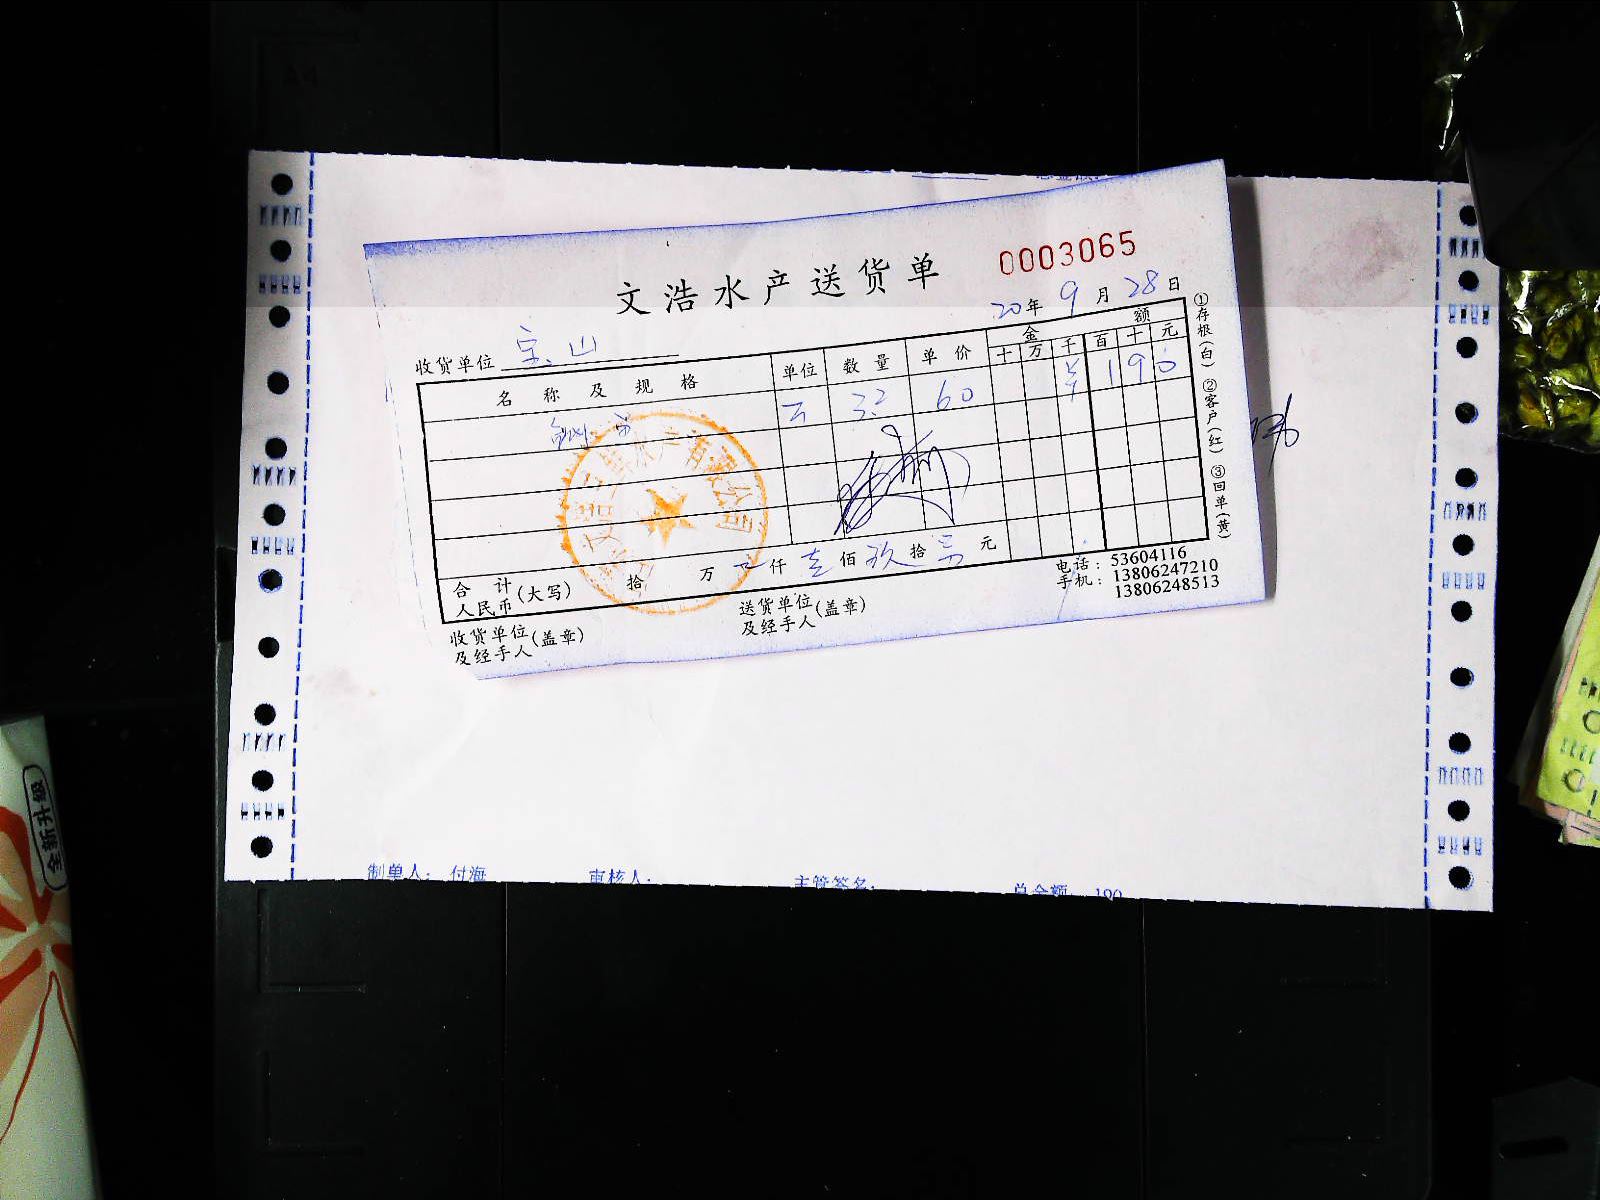 文浩水产送货单
0003065
20年9月28日
收货单位 宝山
名称及规格 单位 数量 单价 金额
十 万 千 百 十 元
3.2 60 ¥ 1 9 0
合计
人民币(大写) 拾 万 仟 壹 佰 玖 拾 元
收货单位(盖章)
及经手人
送货单位(盖章)
及经手人
电话：53604116
手机：13806247210
13806248513
①存根(白) ②客户(红) ③回单(黄)
制单人：付海 审核人： 主管签名： 总金额 190
全新升级
A4